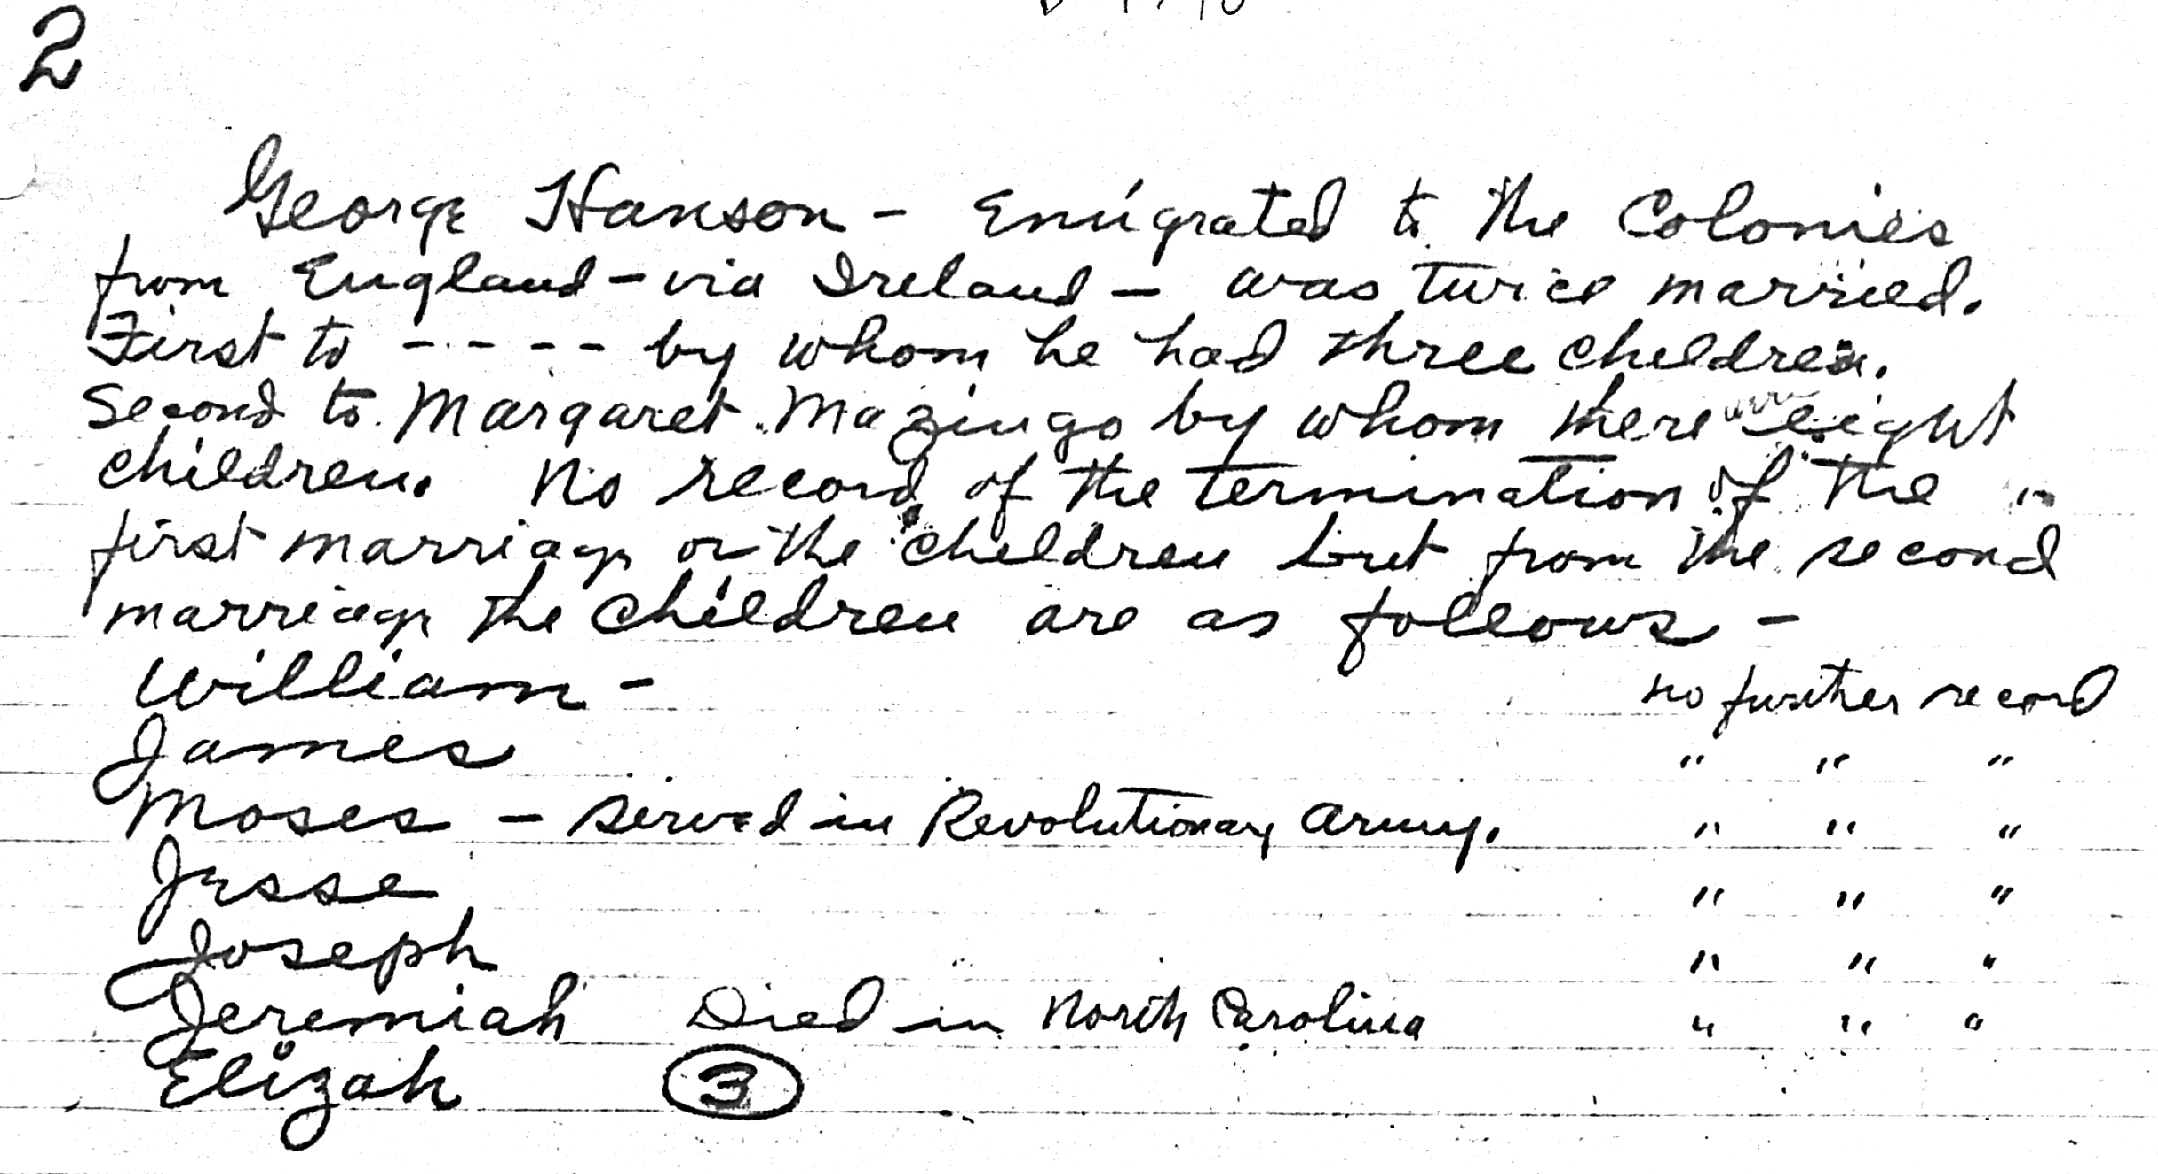 2
George Hanson - Emigrated to the Colonies
from England - via Ireland - was twice married.
First to - - - - by whom he had three children.
Second to Margaret Mazingo by whom there were eight
children. No record of the termination of the
first marriage or the children but from the second
marriage the children are as follows -
William - no further record
James " " "
Moses - served in Revolutionary Army. " " "
Jesse " " "
Joseph " " "
Jeremiah Died in North Carolina " " "
Elizah 3